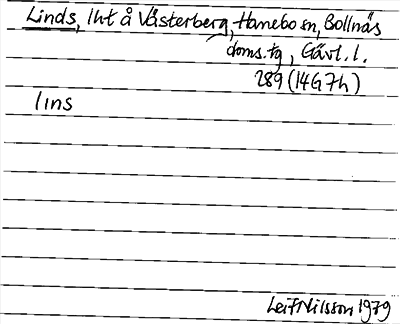 Linds, lht å Västerberg, Hanebo sn, Bollnäs
doms.tg, Gävl.l.
289 (14G7h)
lins
Leif Nilsson 1979